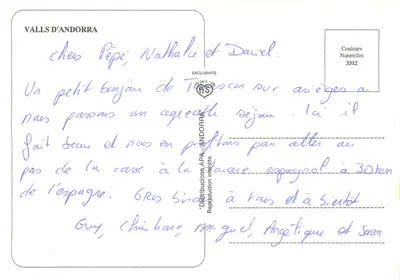 VALLS D'ANDORRA
Couleurs
Naturelles
3312
EXCLUSIVITE
"Distribucions APA" ANDORRA
chers Pépé, Nathalie et Daniel.
Un petit bonjour de Tarascon sur ariège ou
nous passons un agréable séjour. Ici il
fait beau et nous en profitons par aller au
pas de la case à la marque espagnol à 30 km
de l'espagne. Gros bisous à tous et à bientôt
Guy, Christiane, Miguel, Angélique et